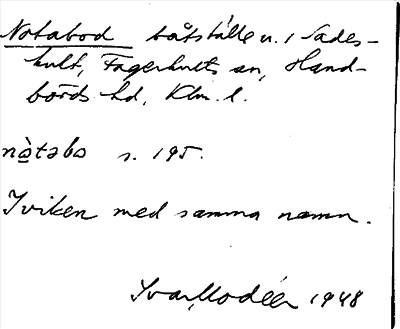 Notabod båtställe n. i Sades-
hult, Fagerhults sn, Hand-
börds hd, Klm. l.
nò̱təbo s. 195.
I viken med samma namn.
Ivar Modéer 1948